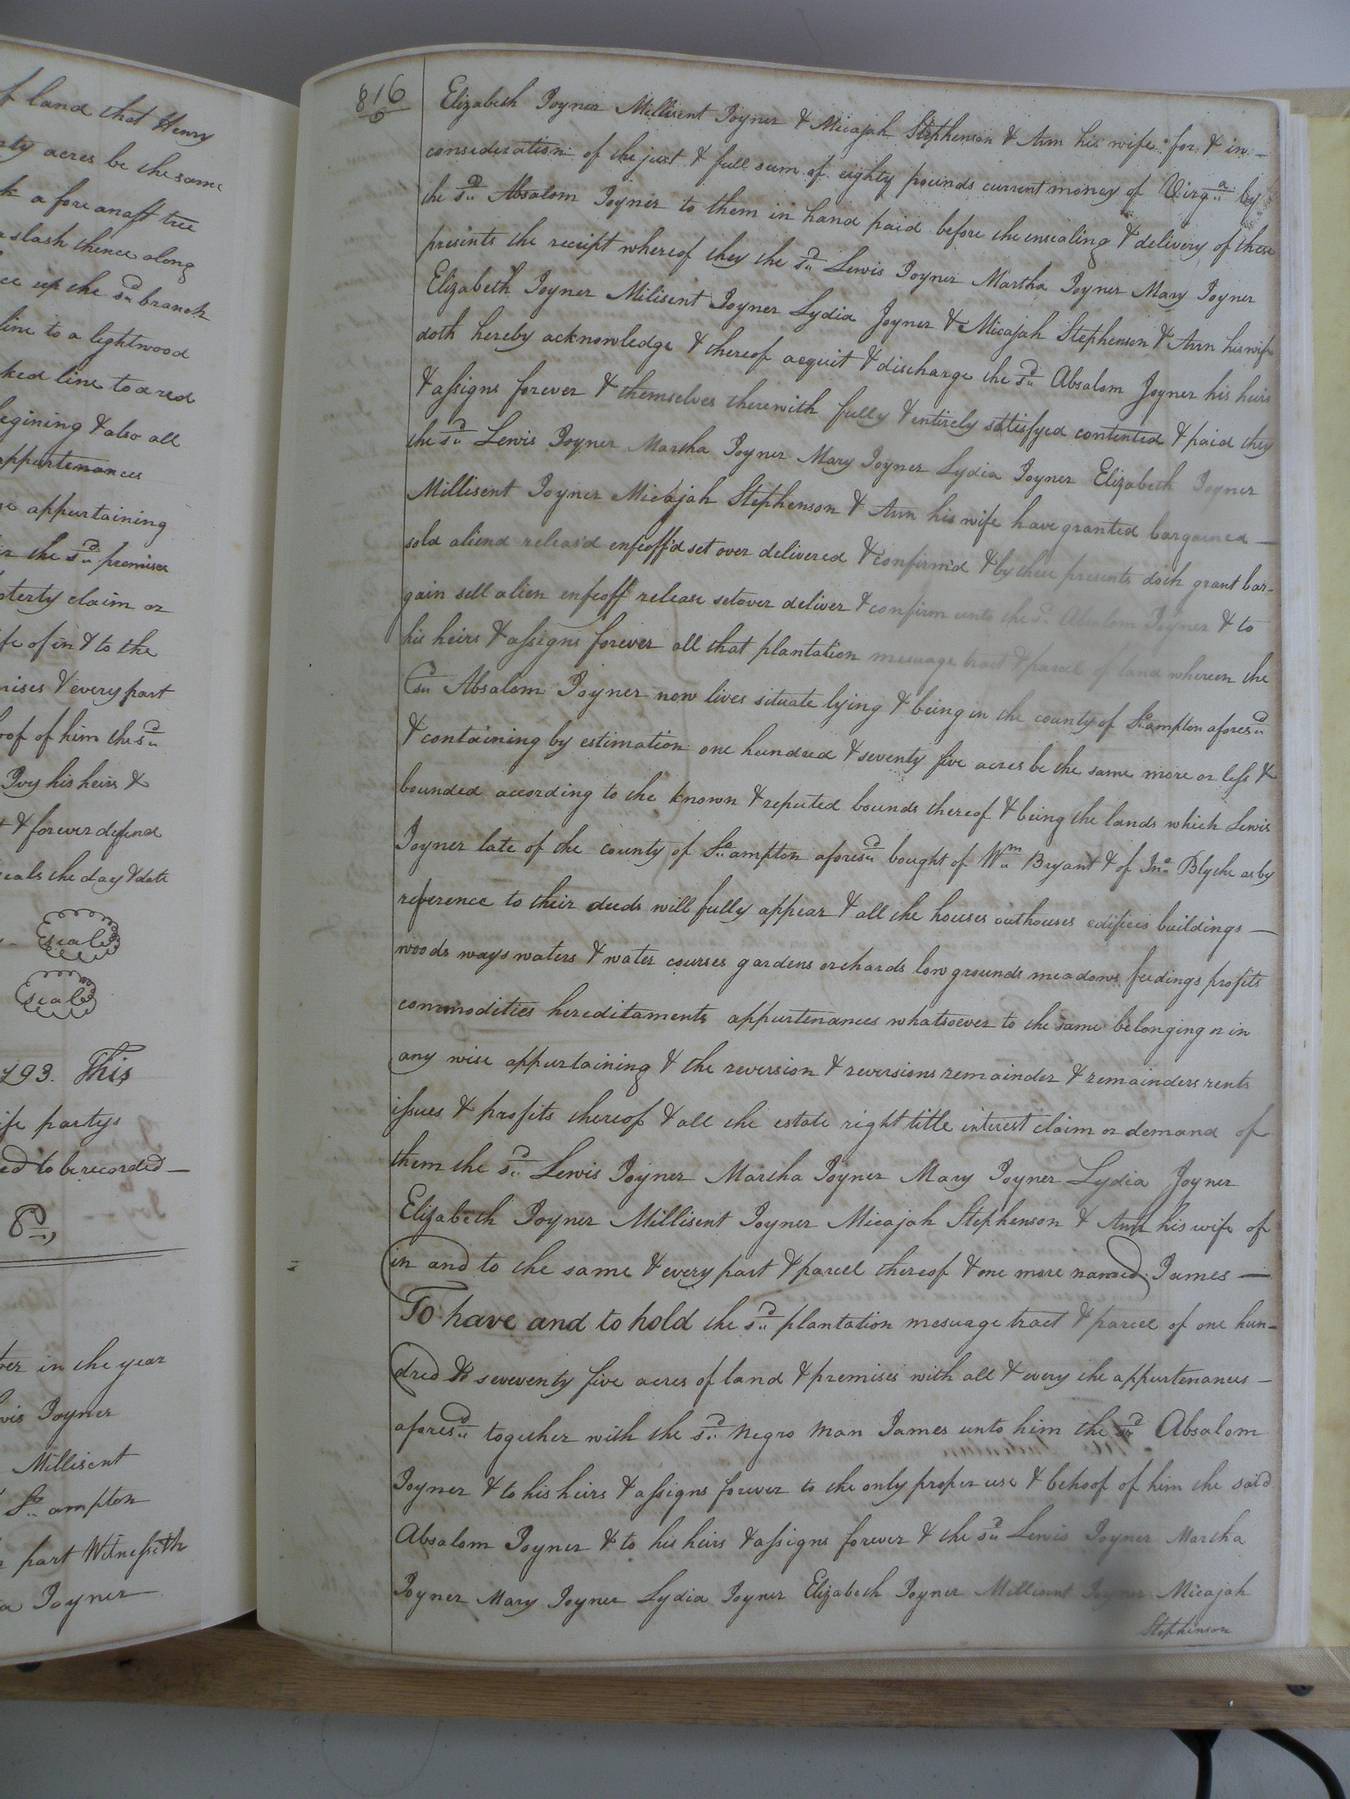 f land that Henry
acres be the same
k a fore anaft tree
slash thence along
up the sd branch
line to a lightwood
ked line to a red
egining & also all
appurtenances
appurtaining
the sd premises
claim or
of in & to the
mises & every part
of him the sd
Ivy his heirs &
& forever defend
eals the day & date
Seal
Seal
793. This
party's
ed to be recorded —
in the year
wis Joyner
Millisent
So ampton
part Witnesseth
a Joyner
816
Elizabeth Joyner Millisent Joyner & Micajah Stephenson & Ann his wife for & in —
consideration of the just & full sum of eighty pounds current money of Virga by
the sd Absalom Joyner to them in hand paid before the ensealing & delivery of these
presents the receipt whereof they the sd Lewis Joyner Martha Joyner Mary Joyner
Elizabeth Joyner Milisent Joyner Lydia Joyner & Micajah Stephenson & Ann his wife
doth hereby acknowledge & thereof acquit & discharge the sd Absalom Joyner his heirs
& assigns forever & themselves therewith fully & entirely satisfyed contented & paid they
the sd Lewis Joyner Martha Joyner Mary Joyner Lydia Joyner Elizabeth Joyner
Millisent Joyner Micajah Stephenson & Ann his wife have granted bargained —
sold aliend releas'd enfeoff'd set over delivered & confirm'd & by these presents doth grant bar-
gain sell alien enfeoff release setover deliver & confirm unto the sd Absalom Joyner & to
his heirs & assigns forever all that plantation mesuage tract & parcel of land whereon the
sd Absalom Joyner now lives situate lying & being in the county of So ampton aforesd
& containing by estimation one hundred & seventy five acres be the same more or less &
bounded according to the known & reputed bounds thereof & being the lands which Lewis
Joyner late of the county of So ampton aforesd bought of Wm Bryant & of Jno Blythe as by
reference to their deeds will fully appear & all the houses outhouses edifices buildings —
woods ways waters & water courses gardens orchards low grounds meadows feedings profits
commodities hereditaments appurtenances whatsoever to the same belonging or in
any wise appurtaining & the reversion & reversions remainder & remainders rents
issues & profits thereof & all the estate right title interest claim or demand of
them the sd Lewis Joyner Martha Joyner Mary Joyner Lydia Joyner
Elizabeth Joyner Millisent Joyner Micajah Stephenson & Ann his wife of
in and to the same & every part & parcel thereof & one more named James —
To have and to hold the sd plantation mesuage tract & parcel of one hun-
dred & seventy five acres of land & premises with all & every the appurtenances —
aforesd together with the sd Negro man James unto him the sd Absalom
Joyner & to his heirs & assigns forever to the only proper use & behoof of him the said
Absalom Joyner & to his heirs & assigns forever & the sd Lewis Joyner Martha
Joyner Mary Joyner Lydia Joyner Elizabeth Joyner Millisent Joyner Micajah
Stephenson